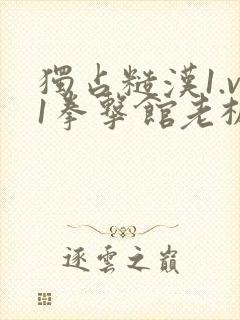 獨占糙漢1.v
1拳擊館老板
逐雲之巔